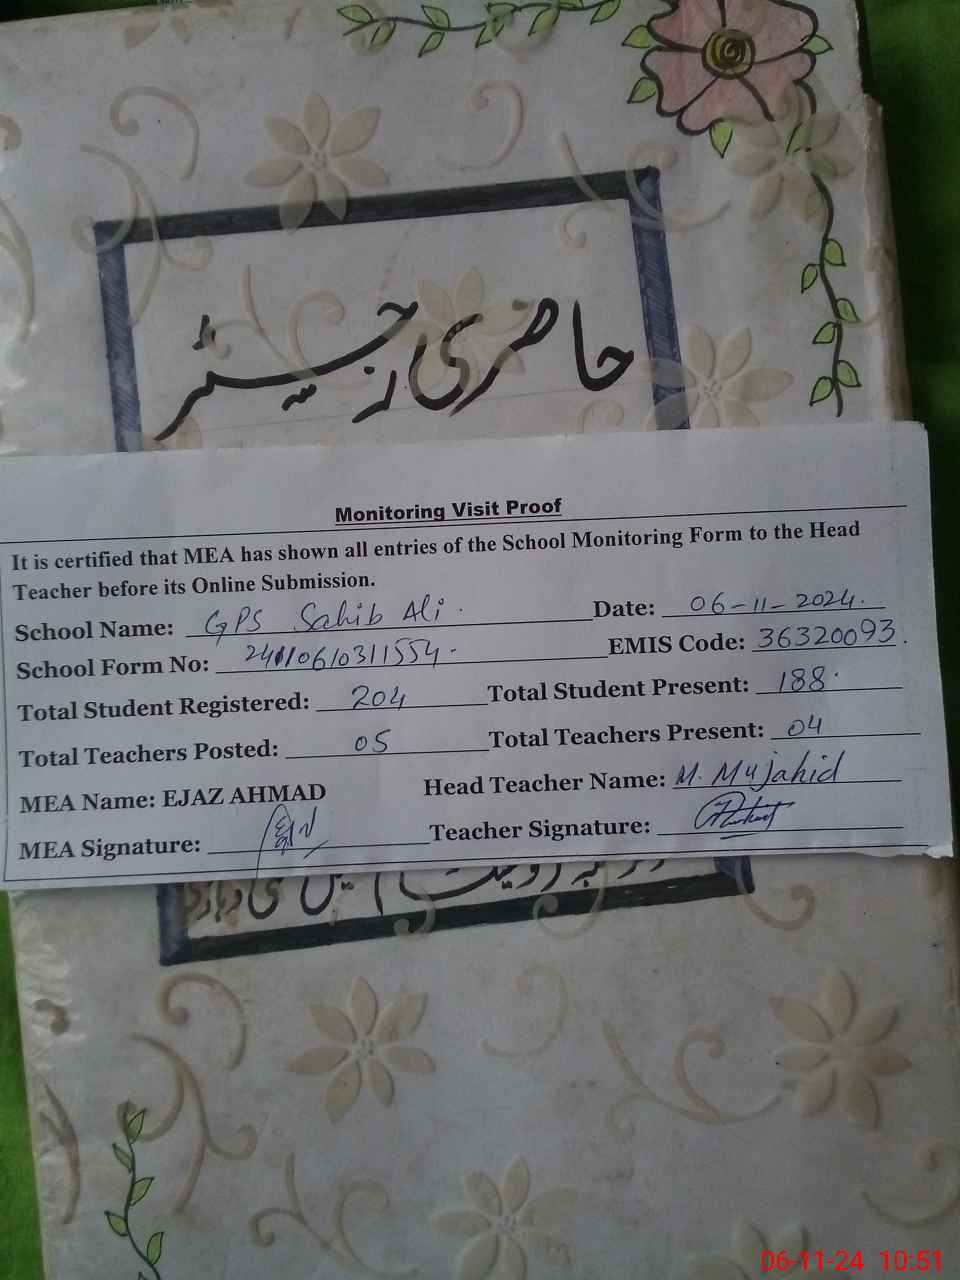 حاضری رجسٹر
Monitoring Visit Proof
It is certified that MEA has shown all entries of the School Monitoring Form to the Head
Teacher before its Online Submission.
School Name: GPS Sahib Ali. Date: 06-11-2024.
School Form No: EMIS Code: 36320093.
Total Student Registered: 204 Total Student Present: 188.
Total Teachers Posted: 05 Total Teachers Present: 04
MEA Name: EJAZ AHMAD Head Teacher Name: M. Mujahid
MEA Signature: Teacher Signature:
06-11-24 10:51